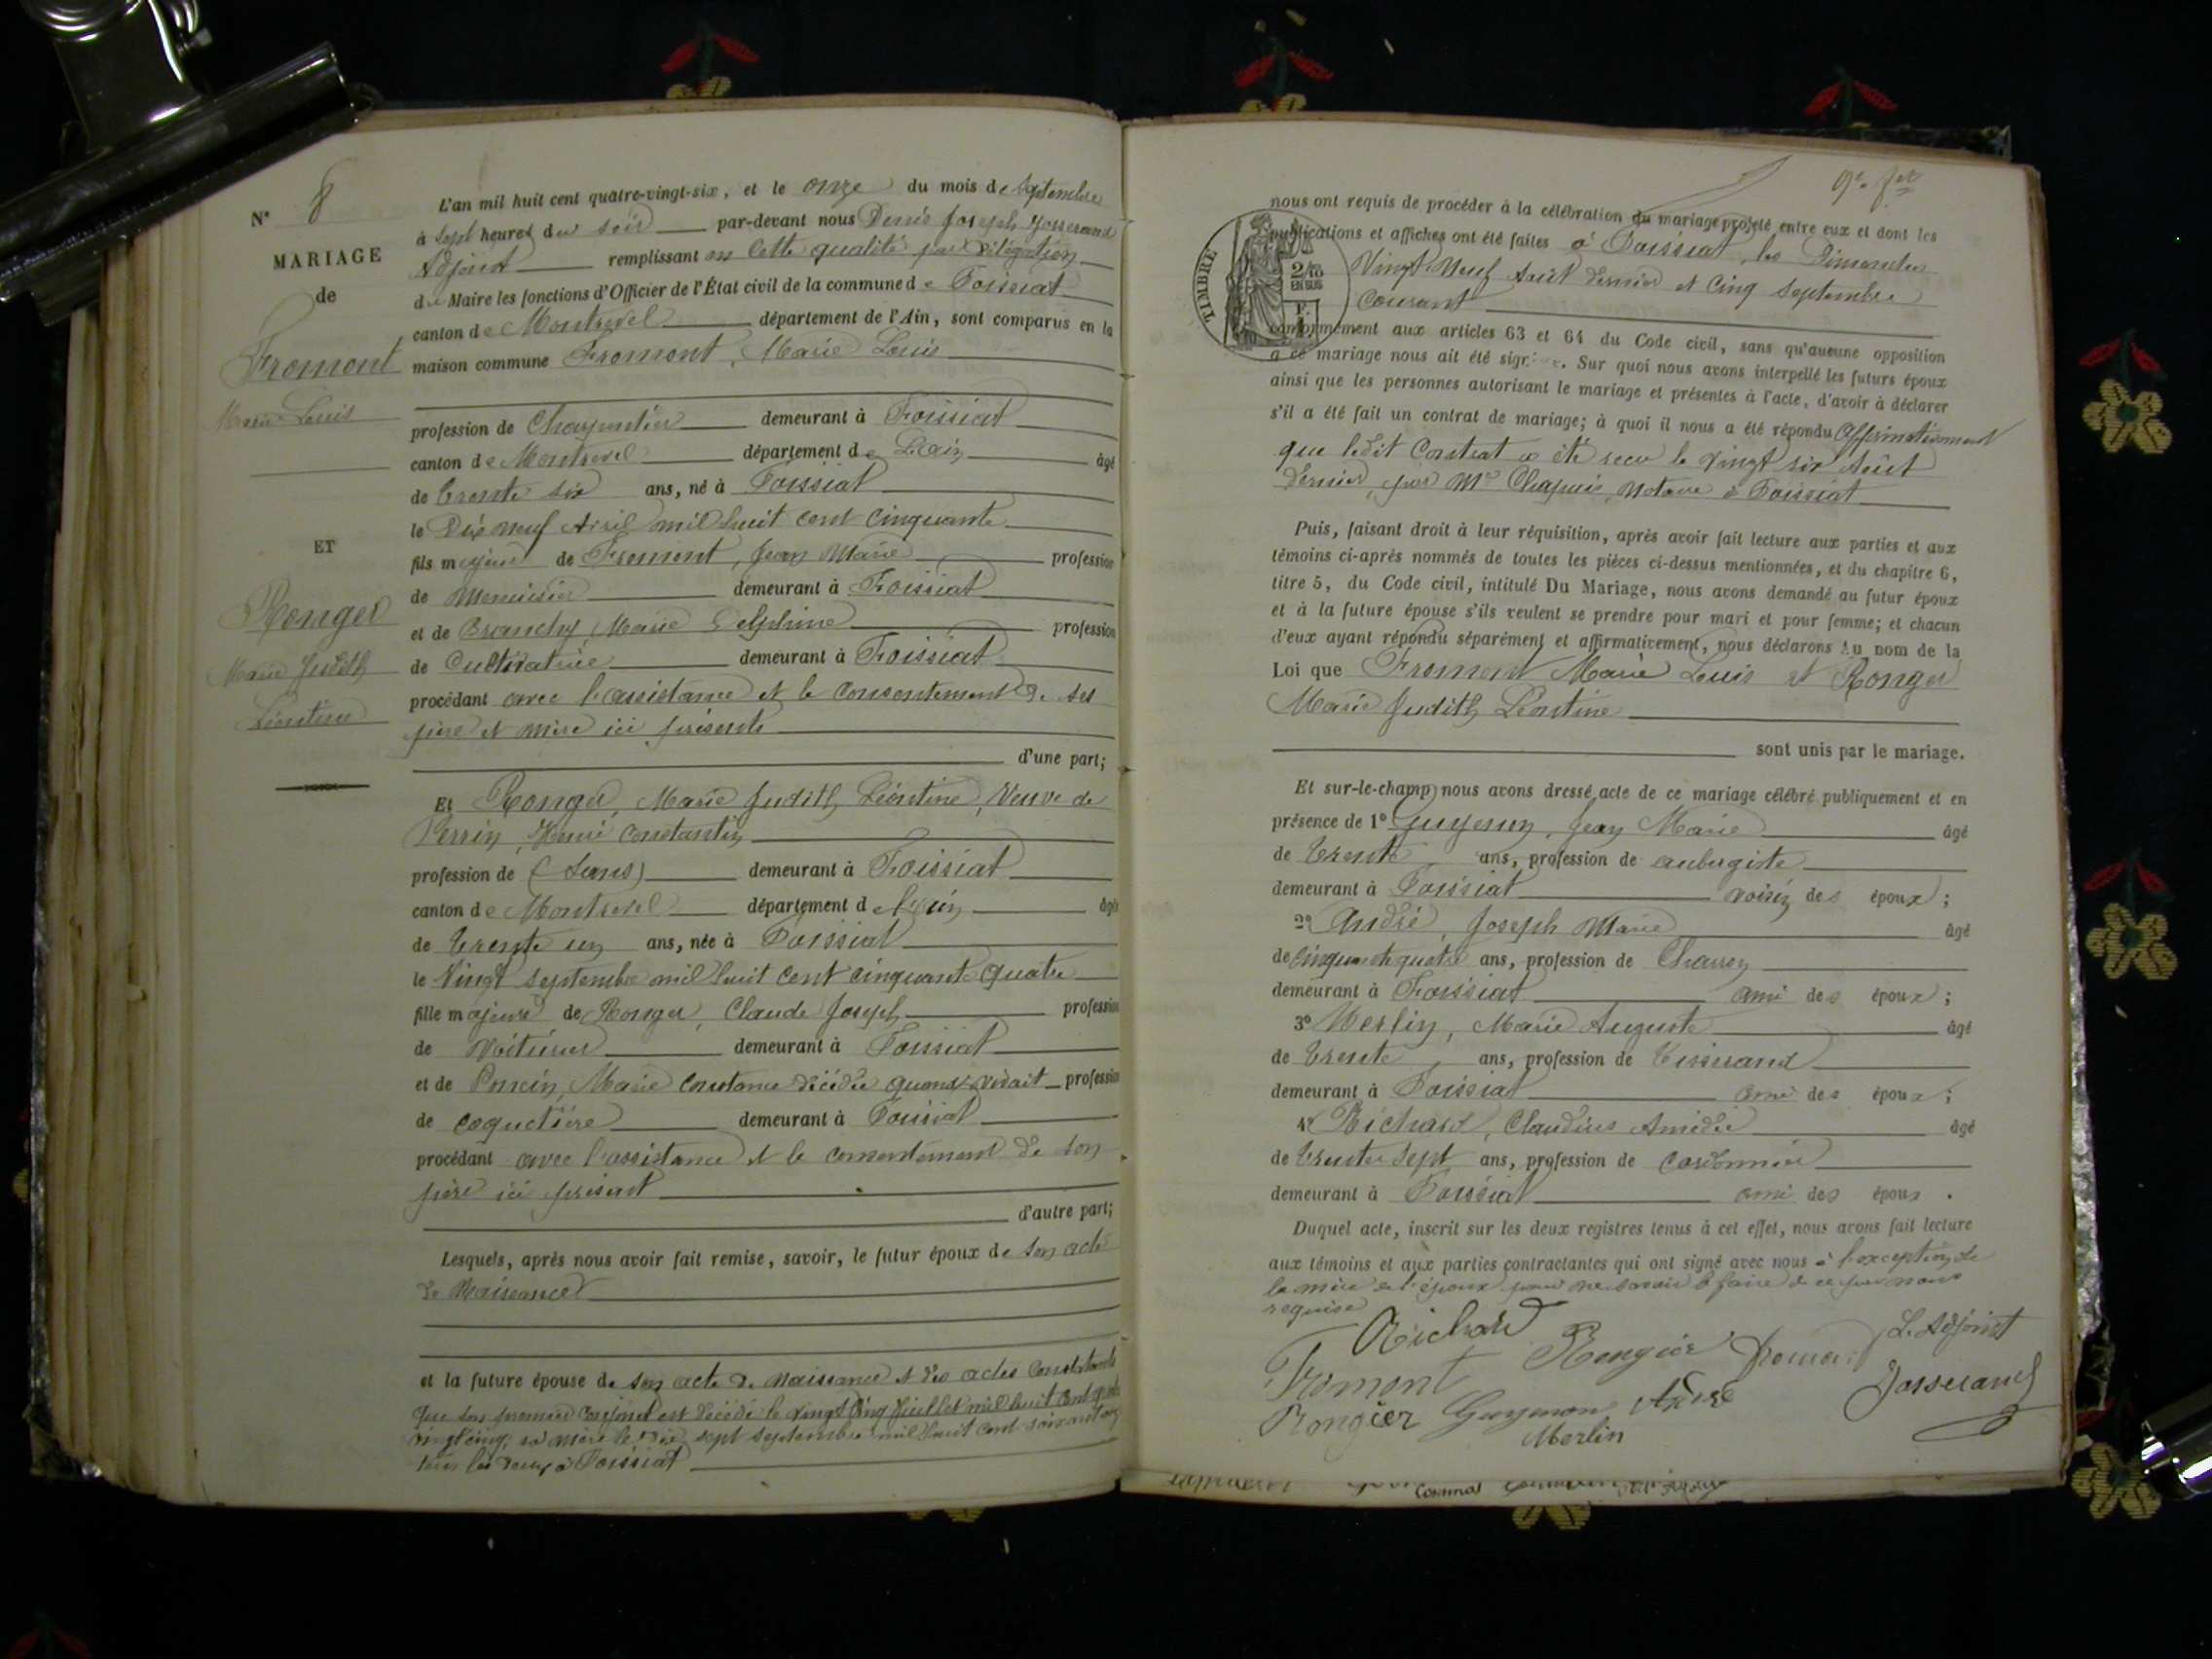 N° 8
MARIAGE
de
Fromont
Marie Louis
ET
Ronger
Marie Judith
Léontine
L'an mil huit cent quatre-vingt-six, et le onze du mois de Septembre
à Sept heures du soir par-devant nous Denis Joseph Josserand
Adjoint remplissant en cette qualité par délégation
du Maire les fonctions d'Officier de l'État civil de la commune de Foissiat
canton de Montrevel département de l'Ain, sont comparus en la
maison commune Fromont, Marie Louis
profession de Charpentier demeurant à Foissiat
canton de Montrevel département de L'Ain âgé
de trente six ans, né à Foissiat
le Dix neuf Avril mil huit cent cinquante
fils majeur de Fromont, Jean Marie profession
de Menuisier demeurant à Foissiat
et de Branchy, Marie Delphine profession
de Cultivatrice demeurant à Foissiat
procédant avec l'assistance et le consentement de ses
père et mère ici présents
d'une part;
Et Ronger, Marie Judith Léontine, Veuve de
Perrin, Henri Constantin
profession de (Sans) demeurant à Foissiat
canton de Montrevel département de l'ain âgée
de trente un ans, née à Foissiat
le Vingt septembre mil huit cent cinquante quatre
fille majeure de Ronger, Claude Joseph profession
de Voiturier demeurant à Foissiat
et de Poncin, Marie Constance décédée quand vivait profession
de coquetière demeurant à Foissiat
procédant avec l'assistance et le consentement de son
père ici présent
d'autre part;
Lesquels, après nous avoir fait remise, savoir, le futur époux de son acte
de Naissance
et la future épouse de son acte de naissance et des actes constatant
que son premier conjoint est décédé le vingt cinq Juillet mil huit cent quatre
vingt cinq; sa mère le dix sept septembre mil huit cent soixante
tous les deux à Foissiat
9e fet
TIMBRE
2/10
EN SUS
nous ont requis de procéder à la célébration du mariage projeté entre eux et dont les
publications et affiches ont été faites à Foissiat, les Dimanches
Vingt Neuf Août dernier et cinq Septembre
Courant
conformément aux articles 63 et 64 du Code civil, sans qu'aucune opposition
à ce mariage nous ait été signifiée. Sur quoi nous avons interpellé les futurs époux
ainsi que les personnes autorisant le mariage et présentes à l'acte, d'avoir à déclarer
s'il a été fait un contrat de mariage; à quoi il nous a été répondu Affirmativement
que ledit Contrat a été reçu le vingt six Août
dernier, par Me Chapuis, Notaire à Foissiat
Puis, faisant droit à leur réquisition, après avoir fait lecture aux parties et aux
témoins ci-après nommés de toutes les pièces ci-dessus mentionnées, et du chapitre 6,
titre 5, du Code civil, intitulé Du Mariage, nous avons demandé au futur époux
et à la future épouse s'ils veulent se prendre pour mari et pour femme; et chacun
d'eux ayant répondu séparément et affirmativement, nous déclarons Au nom de la
Loi que Fromont Marie Louis et Ronger
Marie Judith Léontine
sont unis par le mariage.
Et sur-le-champ nous avons dressé acte de ce mariage célébré publiquement et en
présence de 1° Guyenon, Jean Marie âgé
de trente ans, profession de aubergiste
demeurant à Foissiat voisin des époux;
2° André, Joseph Marie âgé
de cinquante quatre ans, profession de Charron
demeurant à Foissiat ami des époux;
3° Merlin, Marie Auguste âgé
de trente ans, profession de Tisserand
demeurant à Foissiat ami des époux;
4° Richard, Claudius Amédée âgé
de trente sept ans, profession de Cordonnier
demeurant à Foissiat ami des époux.
Duquel acte, inscrit sur les deux registres tenus à cet effet, nous avons fait lecture
aux témoins et aux parties contractantes qui ont signé avec nous à l'exception de
la mère de l'époux pour ne savoir le faire de ce par nous
requise
Richard
Fromont Rongier L'Adjoint
Rongier Guyenon André Josserand
Merlin